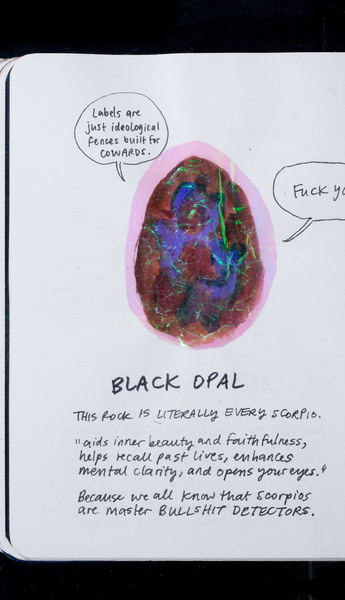 Labels are
just ideological
fences built for
COWARDS.
Fuck yo
BLACK OPAL
THIS ROCK IS LITERALLY EVERY SCORPIO.
"aids inner beauty and faithfulness,
helps recall past lives, enhances
mental clarity, and opens your eyes."
Because we all know that scorpios
are master BULLSHIT DETECTORS.